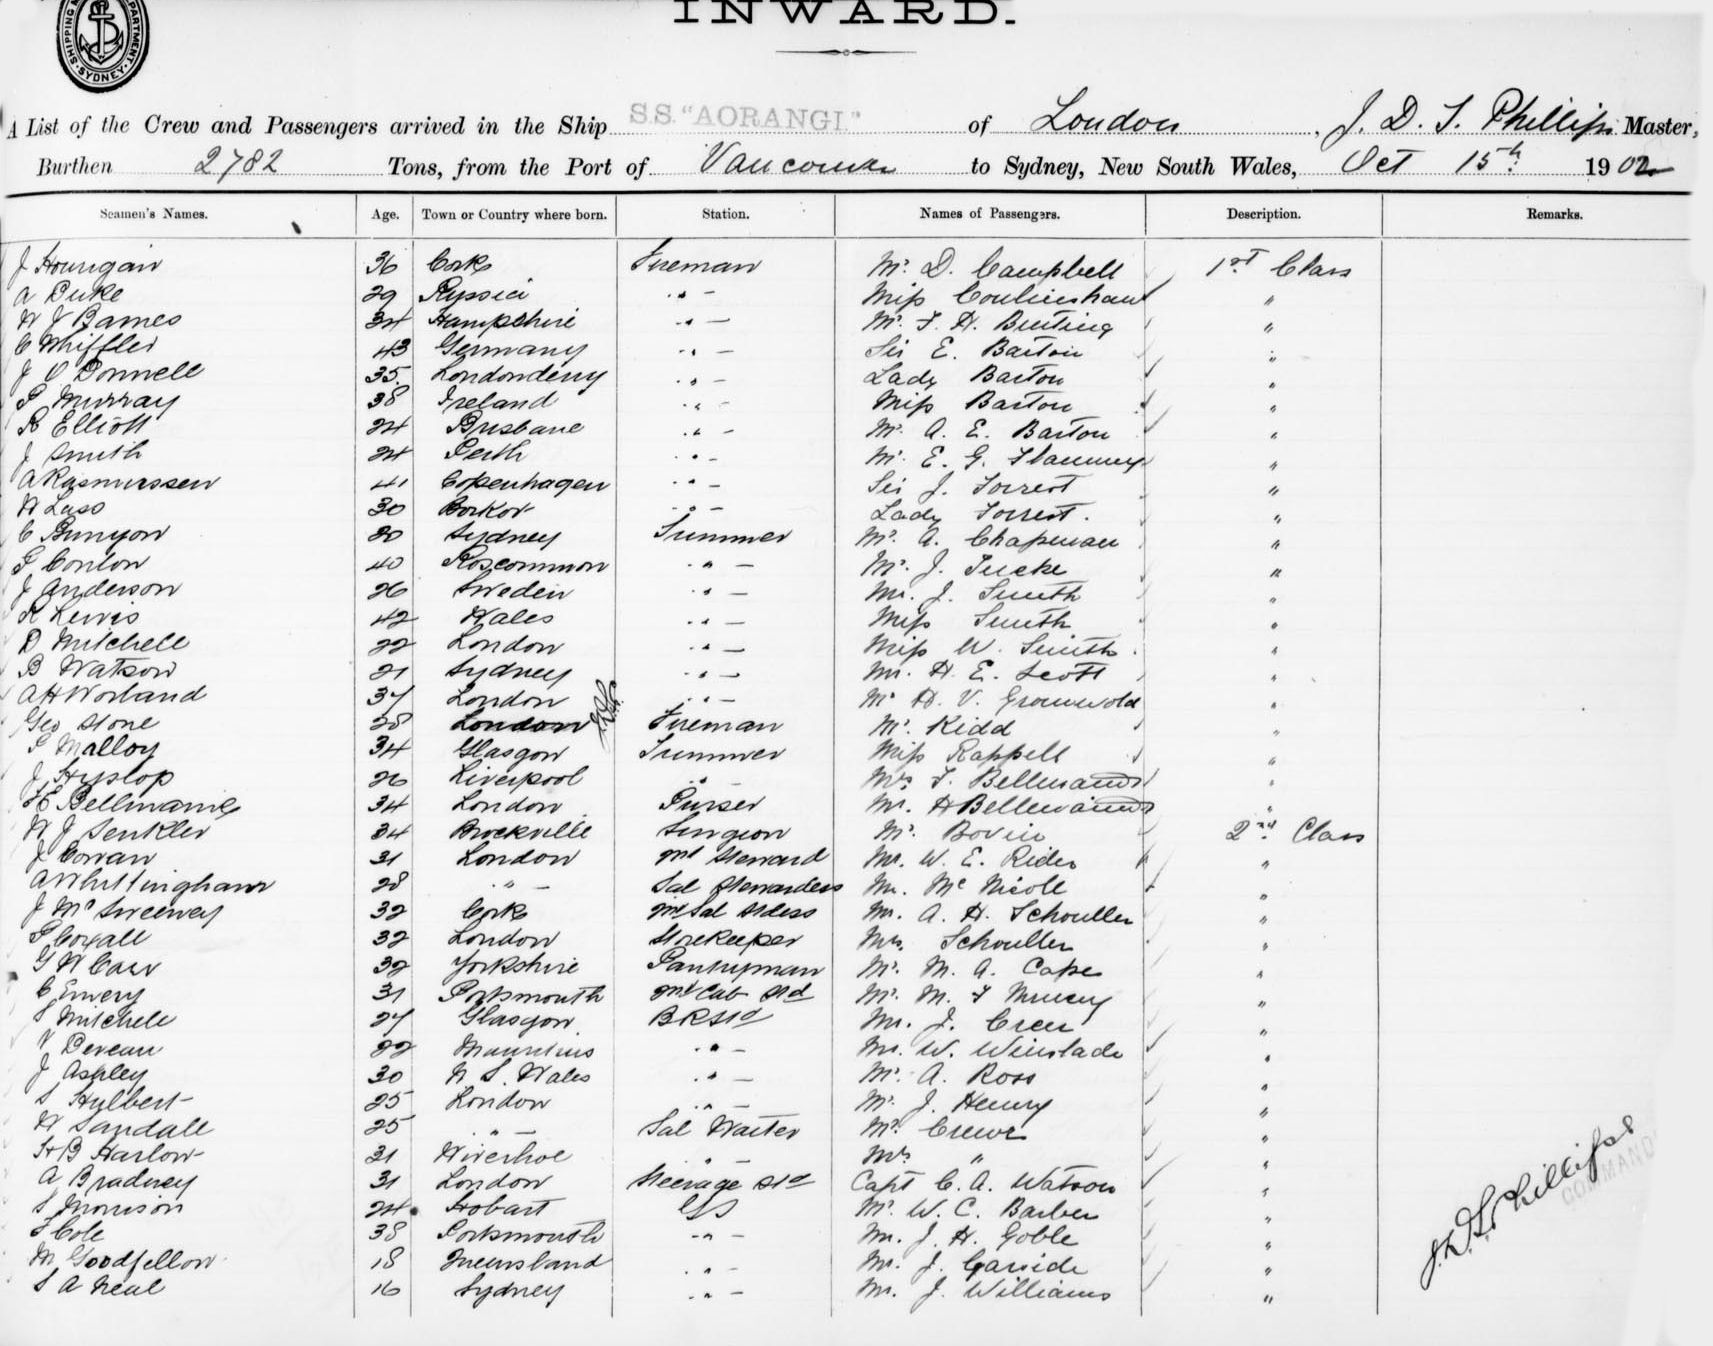 INWARD.
SHIPPING DEPARTMENT. SYDNEY
A List of the Crew and Passengers arrived in the Ship S.S. "AORANGI" of London, J. D. S. Phillips Master,
Burthen 2782 Tons, from the Port of Vancouver to Sydney, New South Wales, Oct 15th 1902
Seamen's Names. Age. Town or Country where born. Station. Names of Passengers. Description. Remarks.
J Hourigan 36 Cork Fireman Mr. D. Campbell 1st Class
A Duke 29 Russia " Miss "
W J Barnes 34 Hampshire " Mr. F. H. Bunting "
C Whiffler 43 Germany " Sir E. Barton "
J O Donnell 35 Londonderry " Lady Barton "
P Murray 38 Ireland " Miss Barton "
R Elliott 24 Brisbane " Mr. A. E. Barton "
J Smith 24 Perth " Mr. E. G. "
A Rasmussen 41 Copenhagen " Sir J. Forrest "
W Lass 30 " Lady Forrest. "
C Bunyon 20 Sydney Trimmer Mr. A. Chapman "
P Conlon 40 Roscommon " Mr. J. "
J Anderson 26 Sweden " Mr. J. Smith "
R Lewis 42 Wales " Miss Smith "
D Mitchell 22 London " Miss W. Smith "
B Watson 21 Sydney " Mr. H. E. Scott "
A H Worland 37 London " Mr H. V. Gronwold "
Geo Stone 28 London Fireman Mr. Kidd "
P Malloy 34 Glasgow Trimmer Miss Rappell "
J Hyslop 26 Liverpool " Mrs F. Bellmaine "
H E Bellmaine 34 London Purser Mr. H Bellmaine "
W J Senkler 34 Brockville Surgeon Mr. Bovin 2nd Class
J Cowan 31 London 2nd Steward Mr. W. E. Rider "
A Whittingham 28 " Sal Stewardess Mr. McNicoll "
J McSweeney 32 Cork 2nd Sal Stdess Mr. A. H. Schouller "
P Coxall 32 London Storekeeper Mrs. Schouller "
G W Carr 32 Yorkshire Pantryman Mr. M. A. Cape "
C Emery 31 Portsmouth 2nd Cab Std Mr. M. F "
S Mitchell 27 Glasgow B R Std Mr. J. Creer "
V Deveau 22 Mauritius " Mr. W. Winslade "
J Ashley 30 N. S. Wales " Mr. A. Ross "
S Hulbert 25 London " Mr. J. Henry "
W Sandall 25 " Sal Waiter Mr. Crewe "
H B Harlow 31 Wivenhoe " Mrs " "
A Bradney 31 London Steerage Std Capt C. A. Watson "
S Morrison 24 Hobart GS Mr. W. C. Barber "
F Cole 38 Portsmouth " Mr. J. H. Goble "
M Goodfellow 18 Queensland " Mr. J. Garside "
S A Neal 16 Sydney " Mr. J. Williams "
J. D. S. Phillips
COMMAND